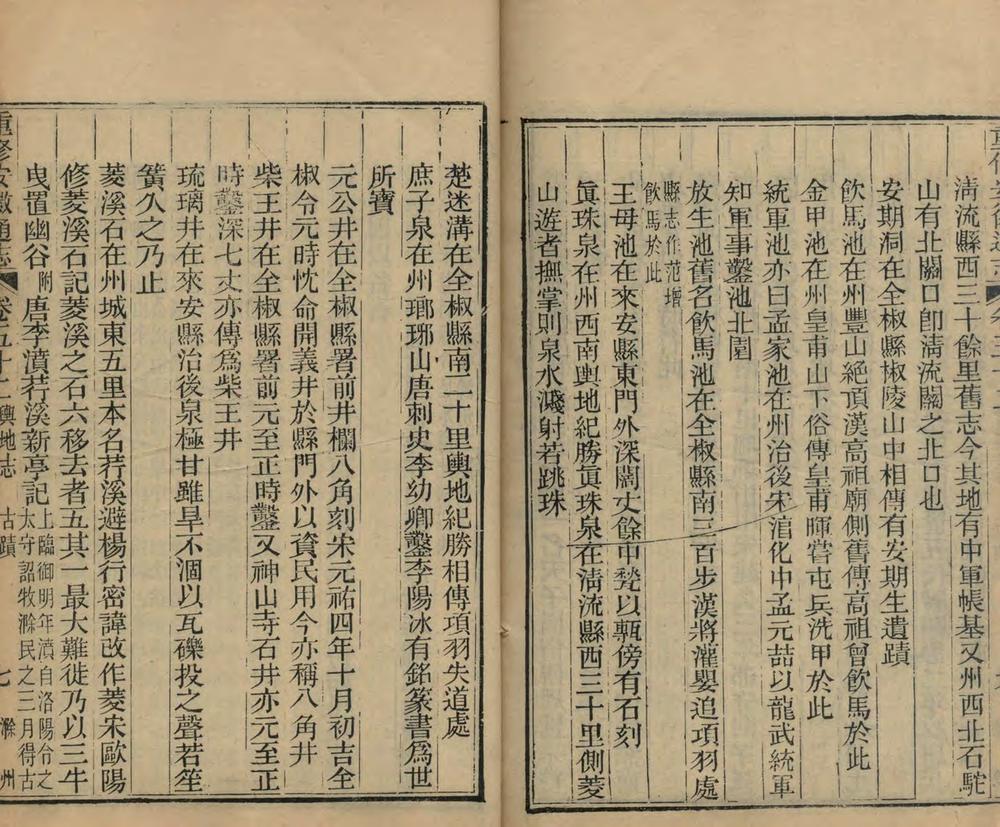 清流縣西三十餘里舊志今其地有中軍帳基又州西北石駝
山有北關口卽清流關之北口也
安期洞在全椒縣椒陵山中相傳有安期生遺蹟
飲馬池在州豐山絶頂漢高祖廟側舊傳高祖曾飲馬於此
金甲池在州皇甫山下俗傳皇甫暉嘗屯兵洗甲於此
統軍池亦曰孟家池在州治後宋淳化中孟元喆以龍武統軍
知軍事鑿池北園
放生池舊名飲馬池在全椒縣南三百步漢將灌嬰追項羽處
縣志作范增
飲馬於此
王母池在來安縣東門外深闊丈餘中甃以甎傍有石刻
眞珠泉在州西南輿地紀勝眞珠泉在清流縣西三十里側菱
山遊者撫掌則泉水濺射若跳珠
楚迷溝在全椒縣南二十里輿地紀勝相傳項羽失道處
庶子泉在州瑯琊山唐刺史李幼卿鑿李陽冰有銘篆書爲世
所寶
元公井在全椒縣署前井欄八角刻宋元祐四年十月初吉全
椒令元時忱命開義井於縣門外以資民用今亦稱八角井
柴王井在全椒縣署前元至正時鑿又神山寺石井亦元至正
時鑿深七丈亦傳爲柴王井
琉璃井在來安縣治後泉極甘雖旱不涸以瓦礫投之聲若笙
簧久之乃止
菱溪石在州城東五里本名荇溪避楊行密諱改作菱宋歐陽
修菱溪石記菱溪之石六移去者五其一最大難徙乃以三牛
曳置幽谷附唐李濆荇溪新亭記上臨御明年濆自洛陽令之
太守詔牧滁民之三月得古
重修安徽通志 卷五十二輿地志 古蹟 七 滁州